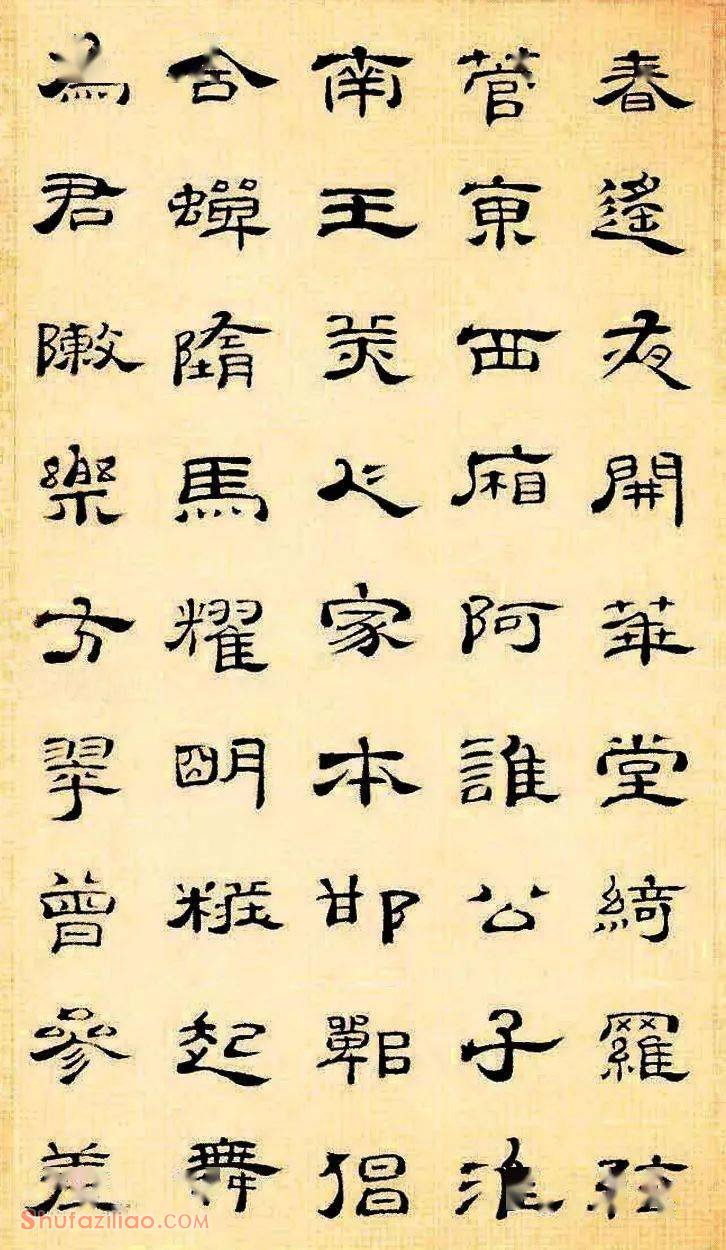 春遙夜開華堂綺羅弦
菅東西廂阿誰公子淮
南王美人家本邯鄲倡
含蟬隋馬耀明粧起舞
為君敶樂方翠曾參差
Shufaziliao.COM